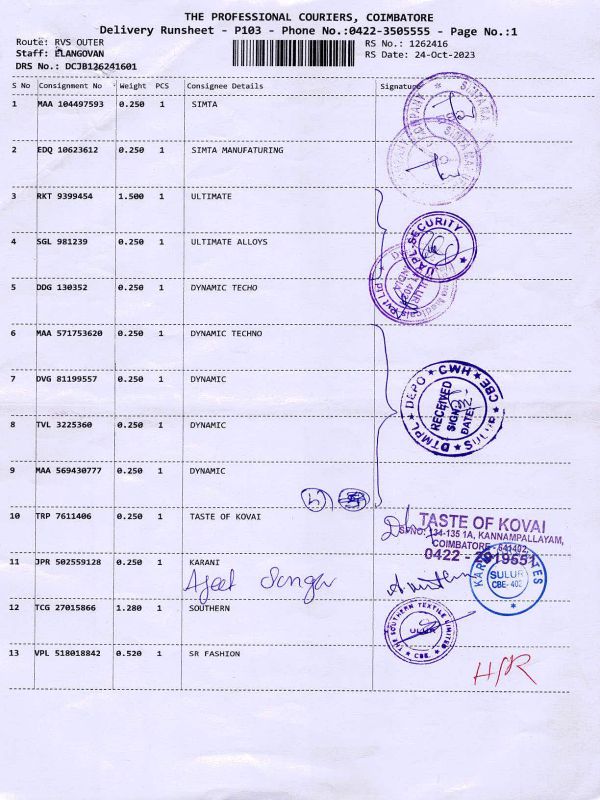 THE PROFESSIONAL COURIERS, COIMBATORE
Delivery Runsheet - P103 - Phone No.:0422-3505555 - Page No.:1
Route: RVS OUTER
RS No.: 1262416
Staff: ELANGOVAN
RS Date: 24-Oct-2023
DRS No.: DCJB126241601
S No Consignment No Weight PCS Consignee Details Signature
1 MAA 104497593 0.250 1 SIMTA
2 EDQ 10623612 0.250 1 SIMTA MANUFATURING
3 RKT 9399454 1.500 1 ULTIMATE
4 SGL 981239 0.250 1 ULTIMATE ALLOYS
UAPL-SECURITY
5 DDG 130352 0.250 1 DYNAMIC TECHO
6 MAA 571753620 0.250 1 DYNAMIC TECHNO
7 DVG 81199557 0.250 1 DYNAMIC
DTMPL DEPO CWH CBE
RECEIVED
SIGN:
DATE:
8 TVL 3225360 0.250 1 DYNAMIC
9 MAA 569430777 0.250 1 DYNAMIC
10 TRP 7611406 0.250 1 TASTE OF KOVAI
TASTE OF KOVAI
134-135 1A, KANNAMPALLAYAM,
COIMBATORE - 641402
0422 -
11 JPR 502559128 0.250 1 KARANI
SULUR
CBE- 402
12 TCG 27015866 1.280 1 SOUTHERN
THE SOUTHERN TEXTILE LIMITED
CBE.
13 VPL 518018842 0.520 1 SR FASHION